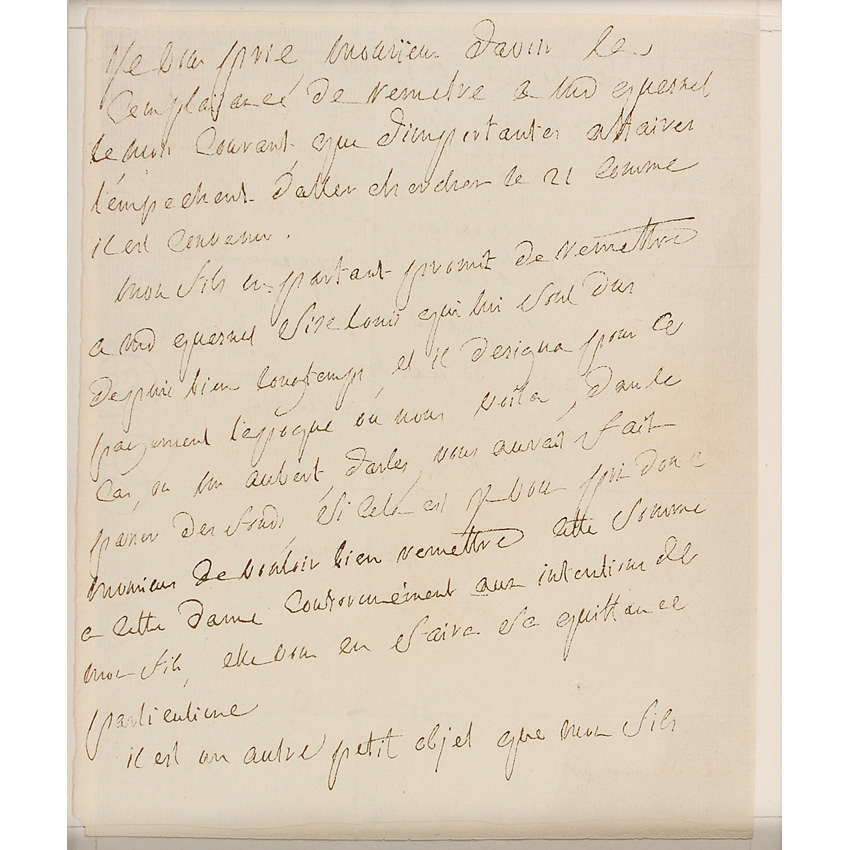 Je vous prie monsieur d'avoir la
complaisance de remettre a md quesnel
le mois courant que d'importantes affaires
l'empechent d'aller chercher le 21 comme
il est convenu.
mon fils en partant promit de remettre
a md quesnel Sise louis qui lui sont dus
depuis bien longtemps, et il designa pour ce
payement l'epoque où nous voila, dans le
cas, ou mr aubert, d'arles, vous aurait fait
passer des fonds, si cela est je vous prie donc
monsieur de vouloir bien remettre cette somme
a cette dame conformément aux intentions de
mon fils, elle vous en faira sa quittance
particuliere
il est un autre petit objet que mon fils